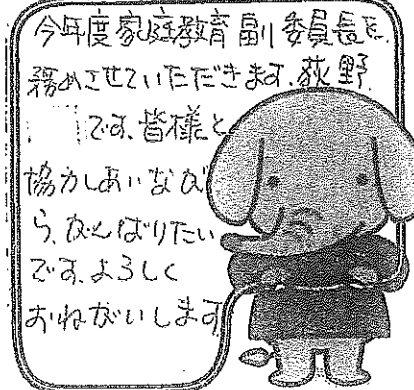 今年度家庭教育副委員長を
務めさせていただきます、荻野
です。皆様と
協力しあいなが
ら、がんばりたい
です。よろしく
おねがいします